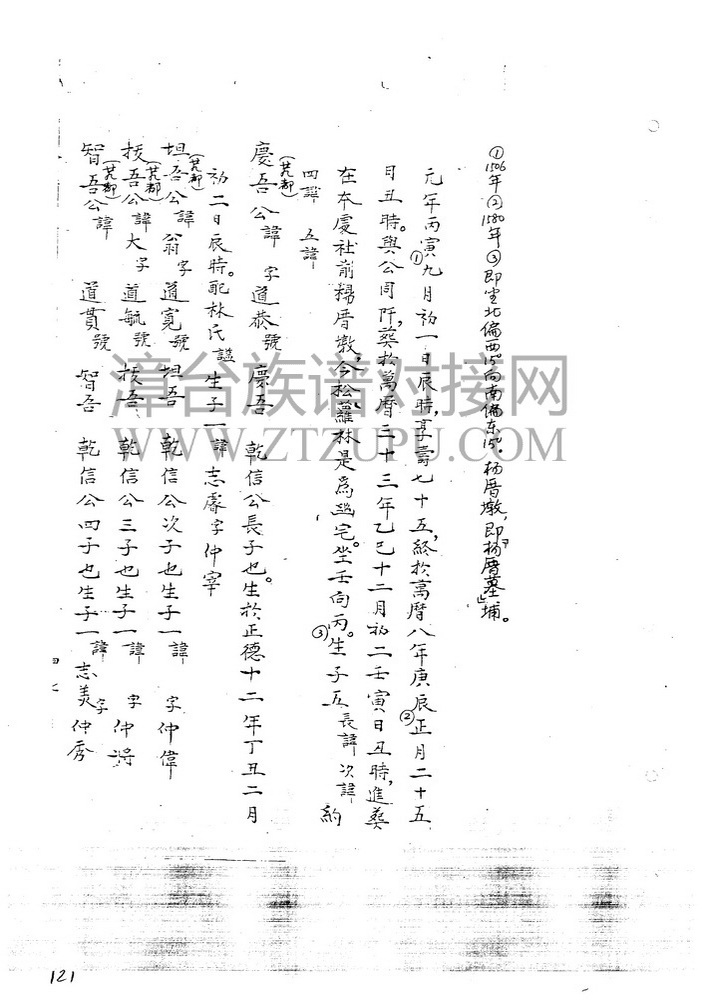 ①1506年②1580年③即坐北偏西15°向南偏东15°.杨厝墩,即"杨厝墓埔"。
元年丙寅①九月初一日辰時,享壽七十五,終於萬曆八年庚辰②正月二十五
日丑時。與公同阡,葬於萬曆三十三年乙巳十二月初二壬寅日丑時,進葬
在本處社前楊厝墩,今松蘿林是為幽宅。坐壬向丙③。生子五長諱 次諱 約
四諱 五諱
慶吾公諱 字道恭號慶吾 乾信公長子也。生於正德十二年丁丑二月
初二日辰時。配林氏諡 生子一諱志睿字仲宰
坦吾公諱翁字道寬號坦吾 乾信公次子也生子一諱 字仲偉
公諱大字道毓號 乾信公三子也生子一諱 字仲
智吾公諱 道貫號智吾 乾信公四子也生子一諱志美字仲秀
121
漳台族谱对接网
WWW.ZTZUPU.COM